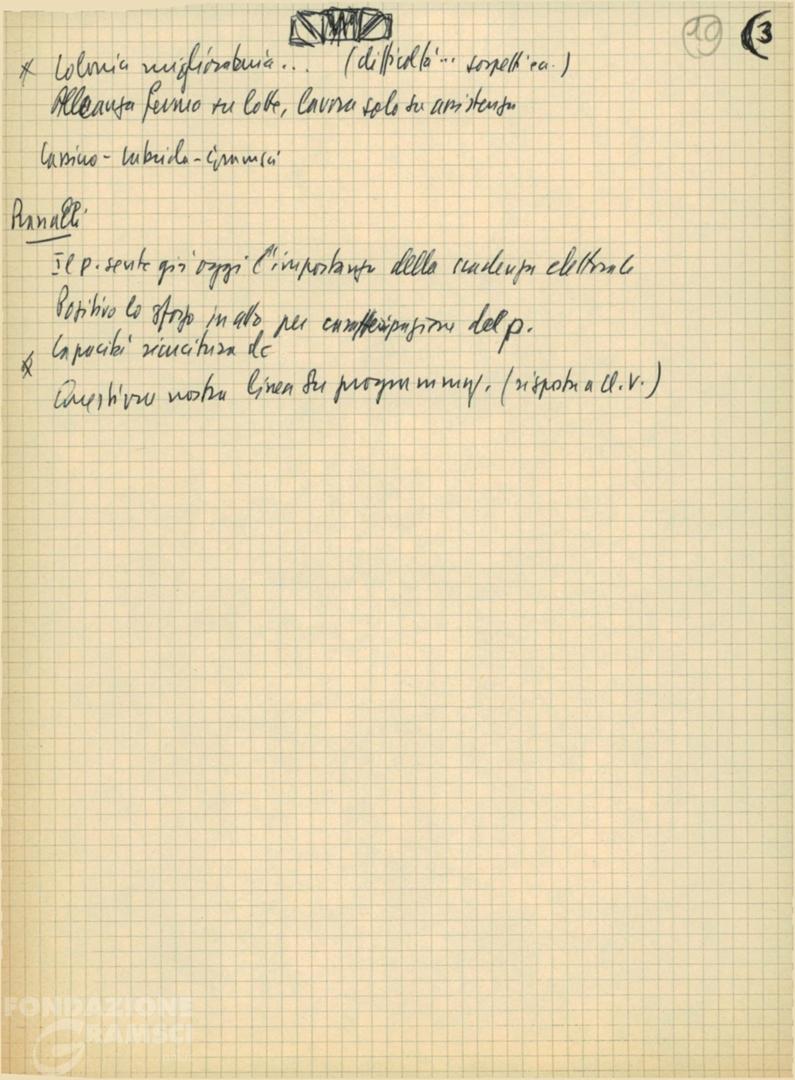 19 (3
* Colonia miglioratoria... (difficoltà... sospetti ecc.)
Alleanza fermo su lotte, lavora solo su assistenza
Cassino - - Gramsci
Ranalli
Il p. sente già oggi l'importanza della scadenza elettorale
Positivo lo sforzo in atto per caratterizzazione del p.
* Capacità ricucitura dc
Questione nostra linea su programmaz. (risposta a .V.)
FONDAZIONE
GRAMSCI